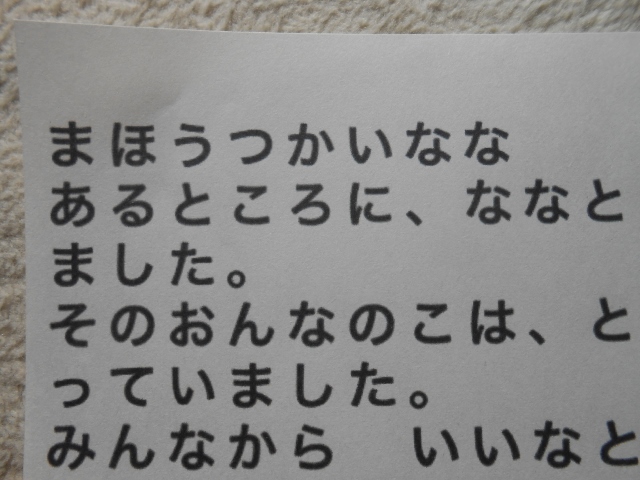 まほうつかいなな
あるところに、ななと
ました。
そのおんなのこは、と
っていました。
みんなから　いいなと